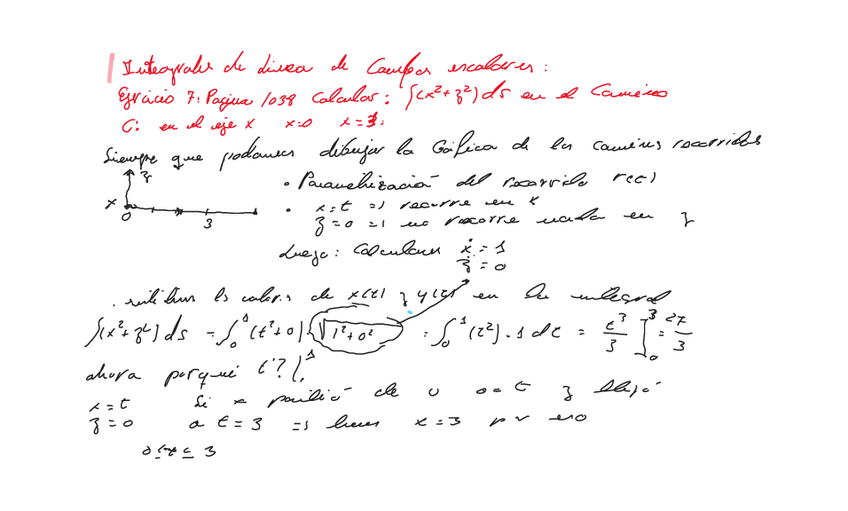 Integrales de linea de Campos escalares:
Ejercicio 7: Pagina 1038 Calcular: ∫(x²+z²)ds en el Camino
C: en el eje x x=0 x=3.
Siempre que podamos dibujar la Gráfica de los caminos recorridos
z
x 0 3
• Parametrización del recorrido r(t)
• x=t => recorre en x
z=0 => no recorre nada en z
Luego: Calculamos ẋ=1
ż=0
. los valores de x(t) y y(t) en la integral
∫(x²+z²)ds = ∫₀¹(t²+0)√1²+0² = ∫₀¹(t²).1dt = t³/3 ]₀³ = 27/3
ahora porqué t?|₀¹
x=t Si x partió de 0 0=t y llegó
z=0 a t=3 => x=3 por eso
0≤t≤3